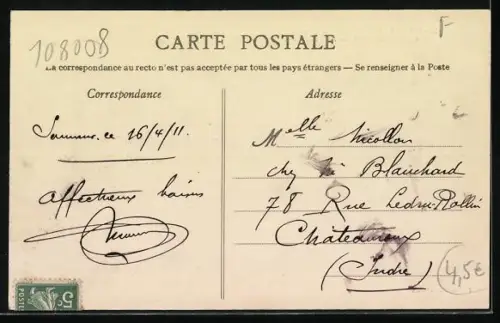 108008
F
CARTE POSTALE
La correspondance au recto n'est pas acceptée par tous les pays étrangers — Se renseigner à la Poste
Correspondance
Adresse
ce 16/4/11.
affectueux baisers
Melle Nicollon
chez Mr Blanchard
78 Rue Ledru-Rollin
Châteauroux
(Indre)
4,5€
5c
POSTES